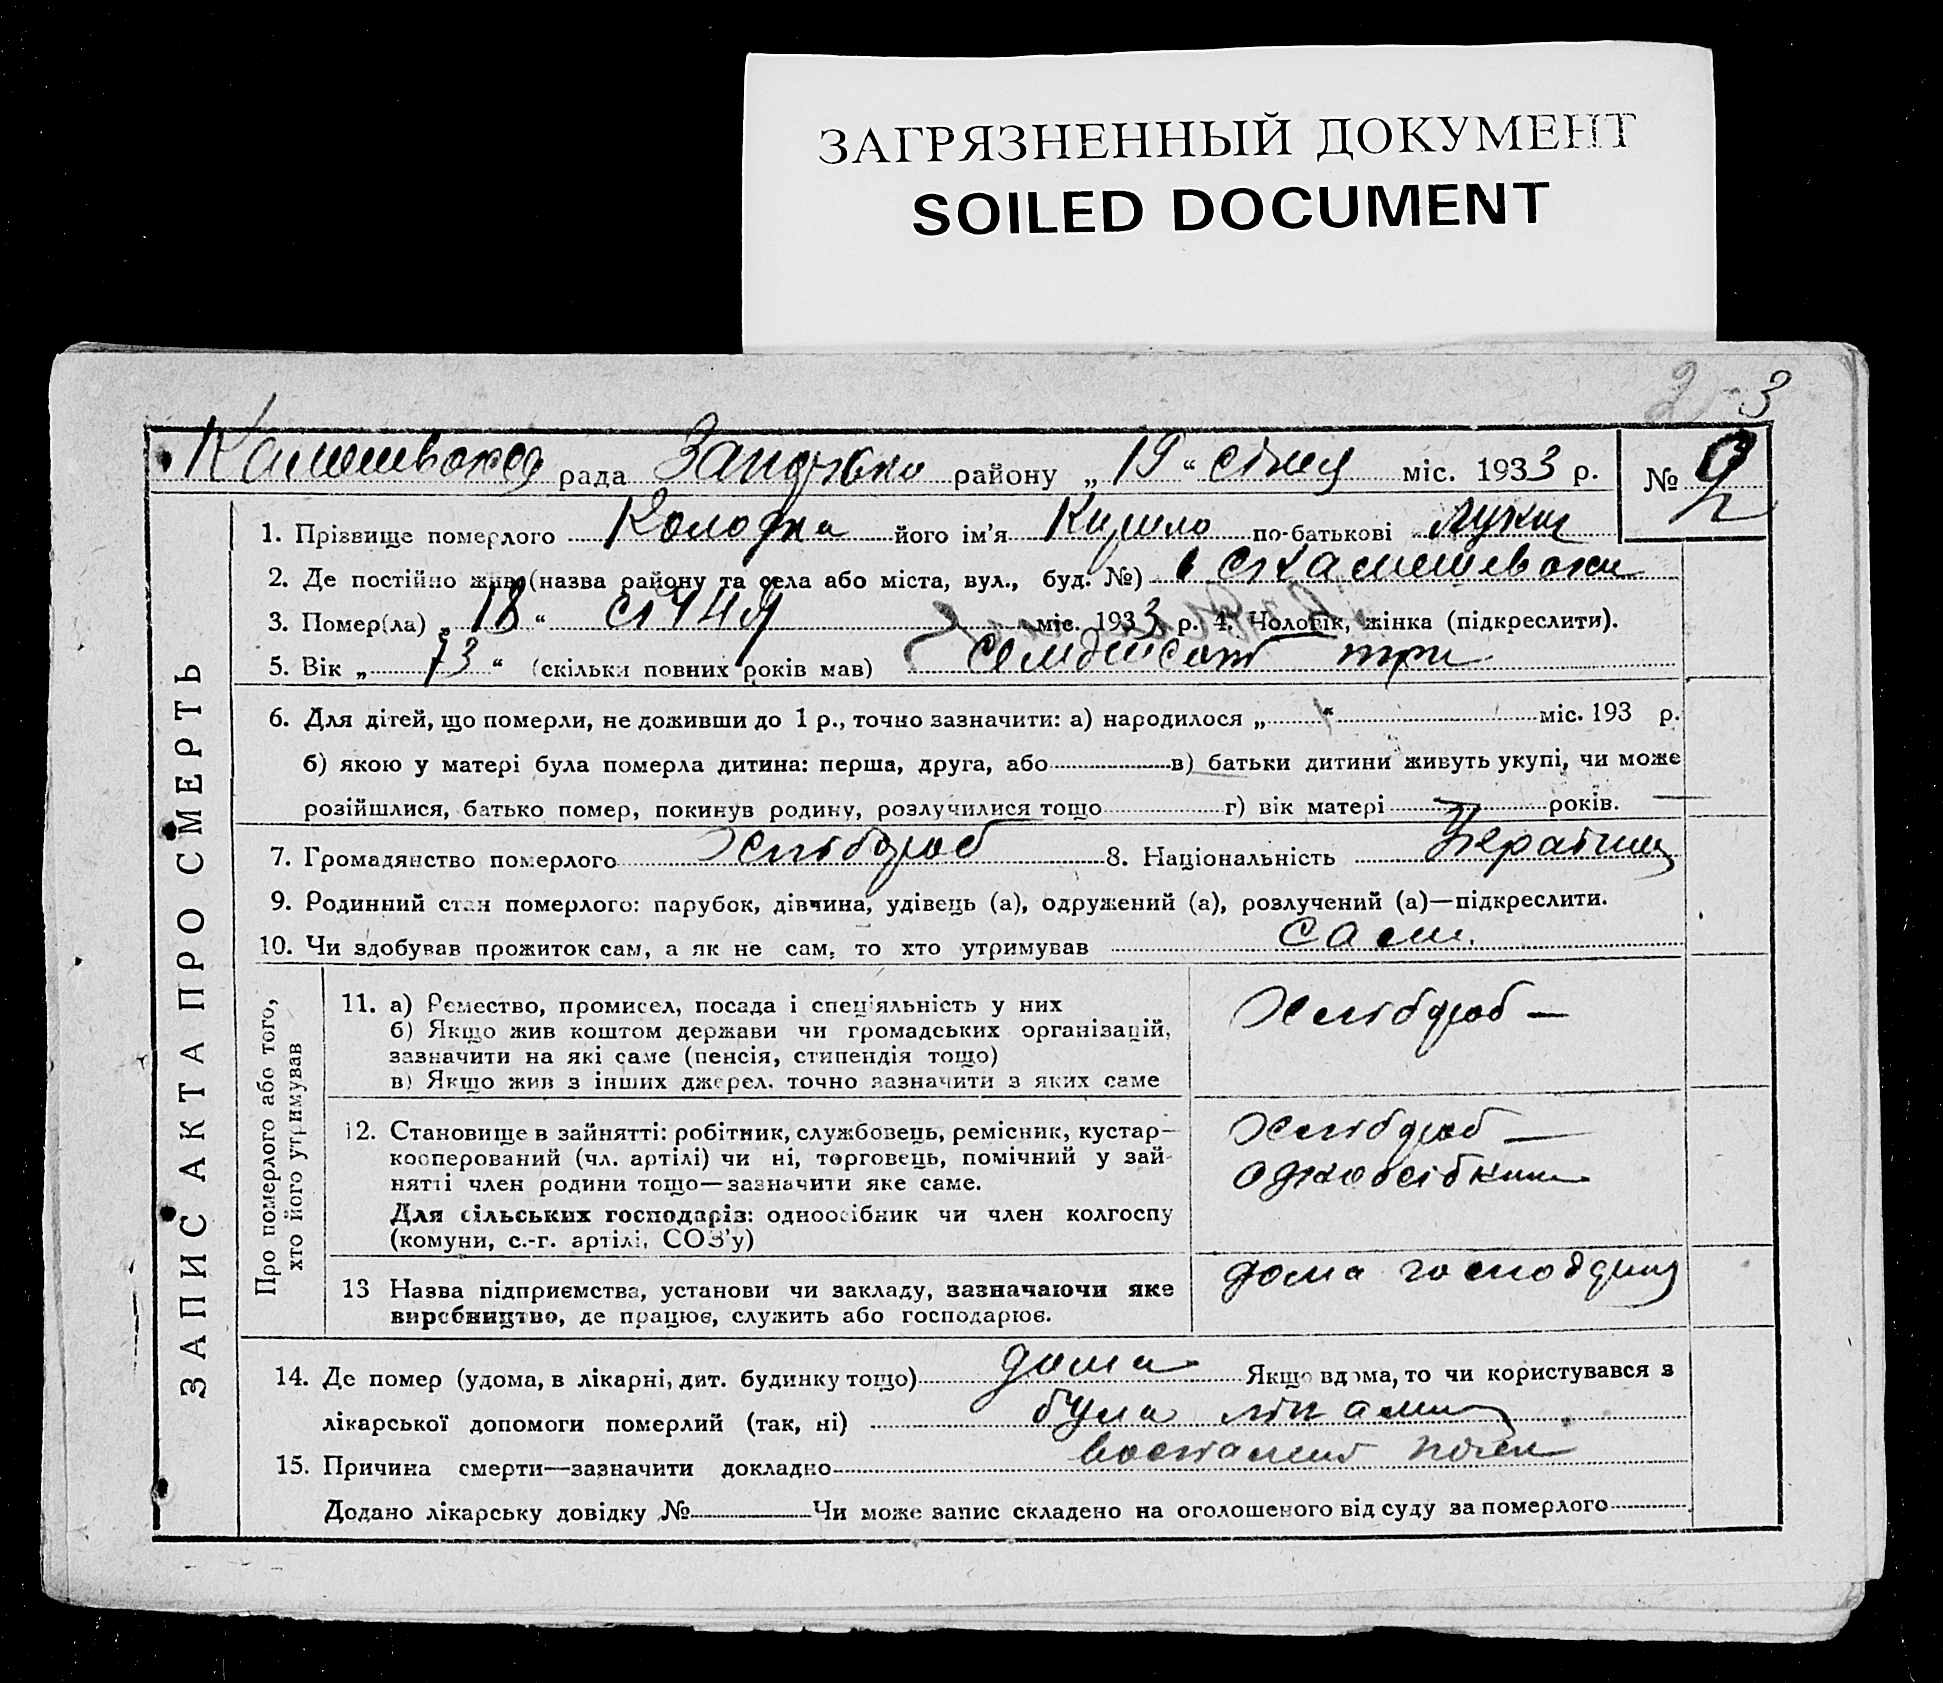 ЗАГРЯЗНЕННЫЙ ДОКУМЕНТ
SOILED DOCUMENT
2 3
рада району „ 19 “ січня міс. 1933 р. №
1. Прізвище померлого Колодка його ім'я Кирило по-батькові Лукич
2. Де постійно жив (назва району та села або міста, вул., буд. №)
3. Помер(ла) „ 18 “ січня міс. 1933 р. 4. Чоловік, жінка (підкреслити).
5. Вік „ 73 “ (скільки повних років мав) семдисат три
6. Для дітей, що померли, не доживши до 1 р., точно зазначити: а) народилося „ “ міс. 193 р.
б) якою у матері була померла дитина: перша, друга, або в) батьки дитини живуть укупі, чи може
розійшлися, батько помер, покинув родину, розлучилися тощо г) вік матері років.
7. Громадянство померлого хлібороб 8. Національність Українець
9. Родинний стан померлого: парубок, дівчина, удівець (а), одружений (а), розлучений (а)—підкреслити.
10. Чи здобував прожиток сам, а як не сам, то хто утримував сам.
ЗАПИС АКТА ПРО СМЕРТЬ
Про померлого або того,
хто його утримував
11. а) Ремество, промисел, посада і спеціяльність у них
б) Якщо жив коштом держави чи громадських організацій,
зазначити на які саме (пенсія, стипендія тощо)
в) Якщо жив з інших джерел, точно зазначити з яких саме
хлібороб —
12. Становище в зайнятті: робітник, службовець, ремісник, кустар—
кооперований (чл. артілі) чи ні, торговець, помічний у зай-
нятті член родини тощо—зазначити яке саме.
Для сільських господарів: одноосібник чи член колгоспу
(комуни, с.-г. артілі, СОЗ'у)
хлібороб —
одноосібник
13 Назва підприємства, установи чи закладу, зазначаючи яке
виробництво, де працює, служить або господарює.
дома
14. Де помер (удома, в лікарні, дит. будинку тощо) дома Якщо вдома, то чи користувався з
лікарської допомоги померлий (так, ні) була
15. Причина смерти—зазначити докладно
Додано лікарську довідку № Чи може запис складено на оголошеного від суду за померлого